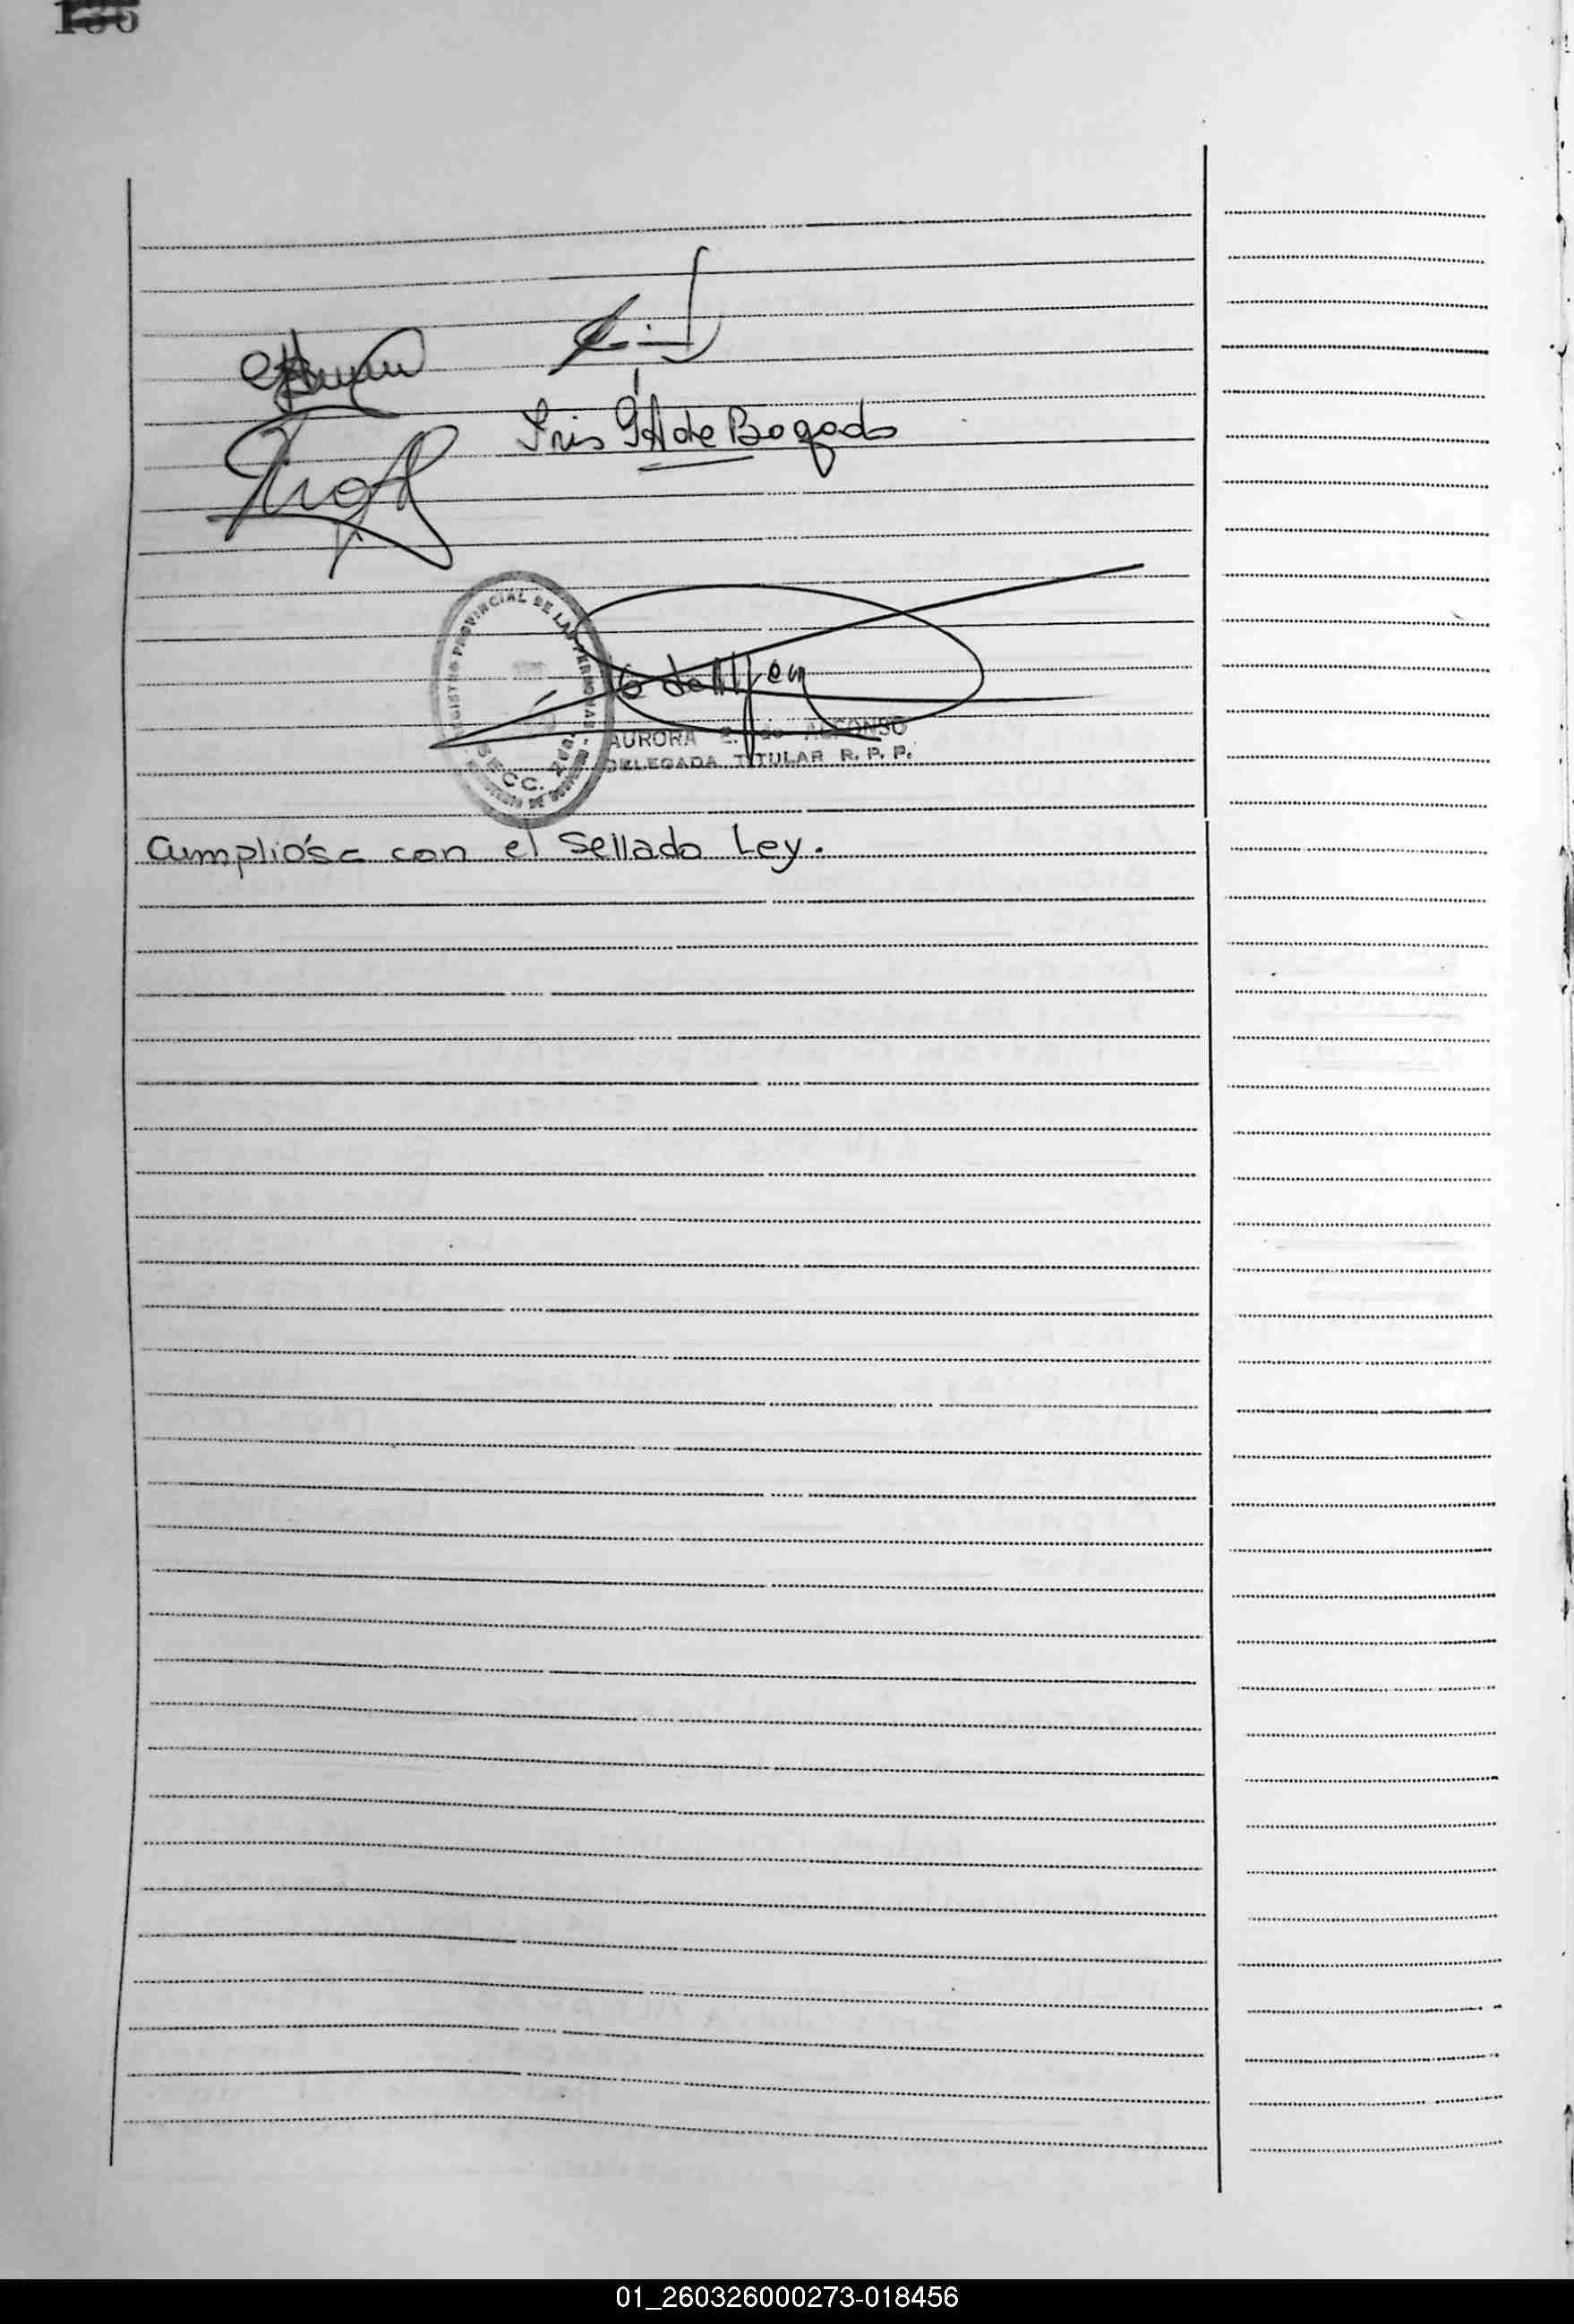 135
Iris G A de Bogado
REGISTRO PROVINCIAL DE LAS PERSONAS
SECC. 2da.
AURORA E. de ALFONSO
DELEGADA TITULAR R. P. P.
Cumplióse con el Sellado Ley.
01_260326000273-018456